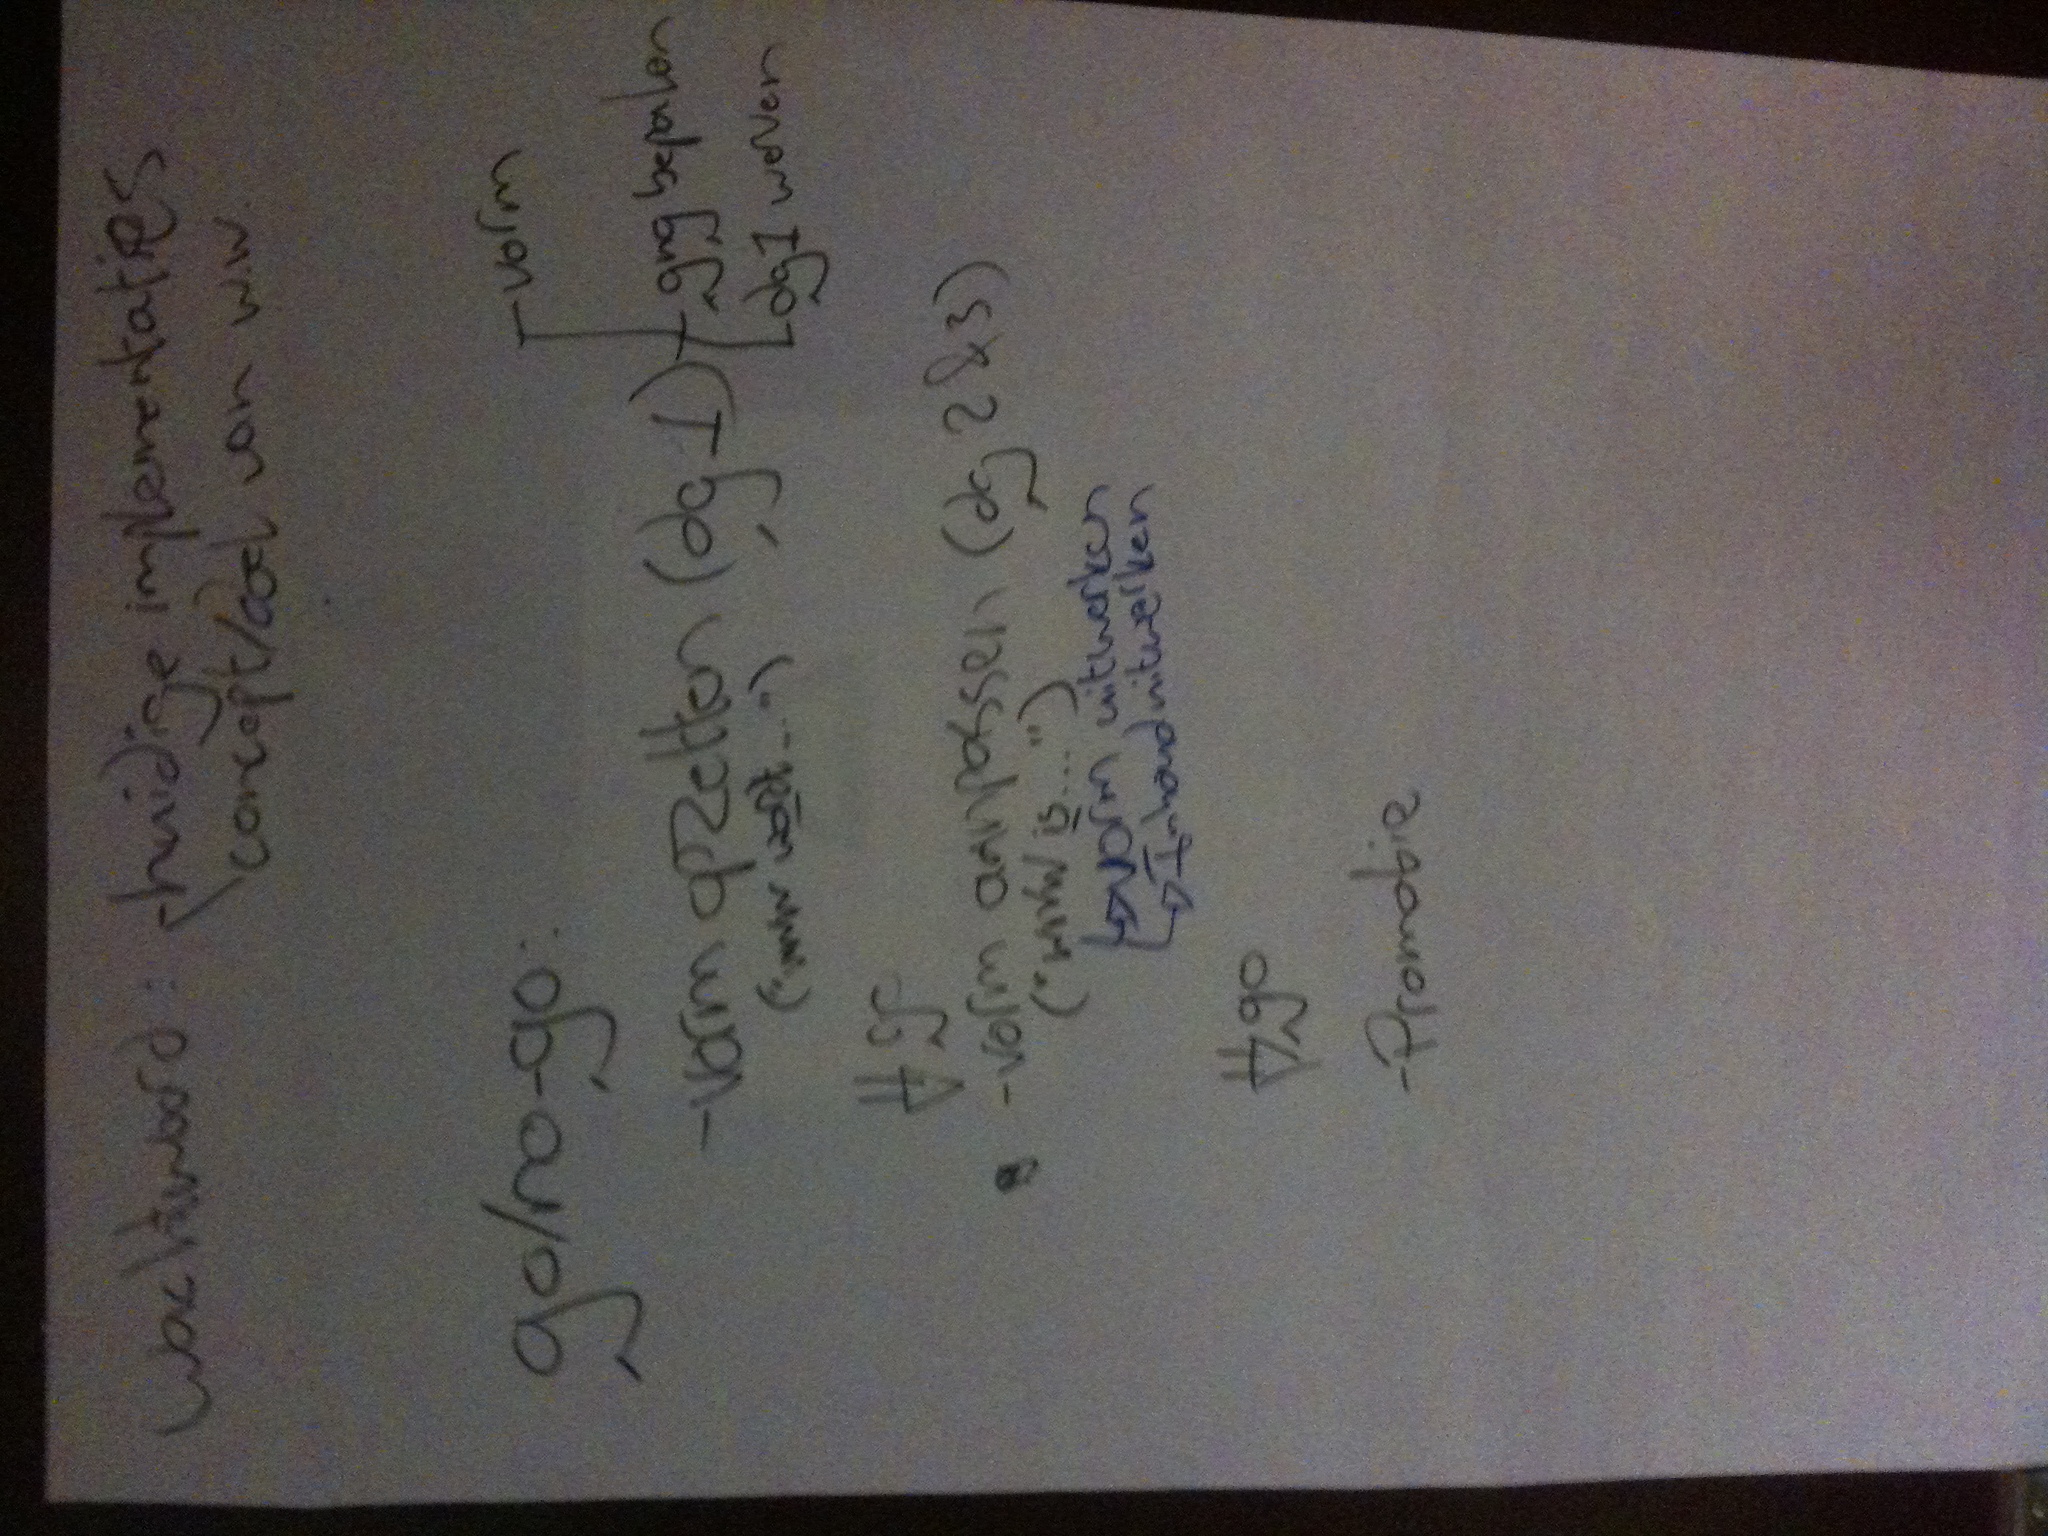 wachtwoord : - huidige implementaties
concept/doel van ww.
go/no-go:
- vorm opzetten (dg 1)
- vorm
- gang bepalen
- dg 1 woven
("ww
go
- vorm aanpassen (dg 2 & 3)
("ww is....")
→ vorm uitwerken
→ Inhoud uitwerken
go
- Promotie